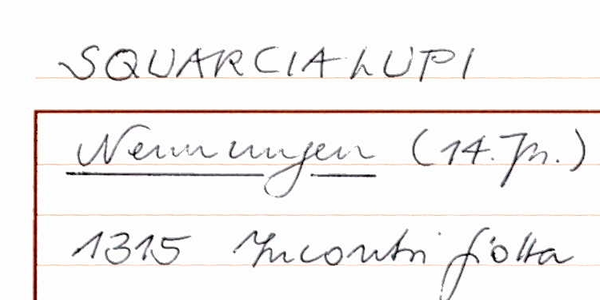 SQUARCIALUPI
Nennungen (14. Jh.)
1315 Incontri Giotta